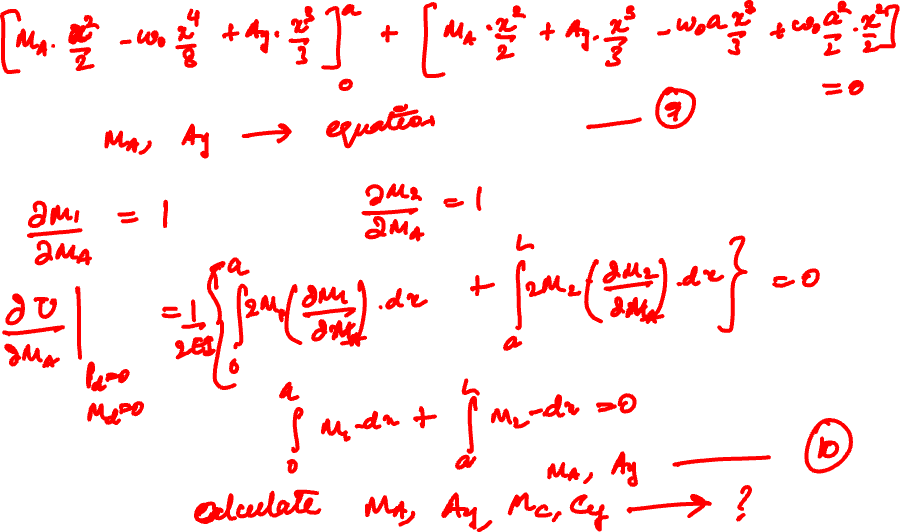 [M_A · x²/2 - w₀ x⁴/8 + A_y · x³/3]₀ᵃ + [M_A · x²/2 + A_y · x³/3 - w₀a x³/3 + w₀ a²/2 · x²/2]
= 0
M_A, A_y → equation — ⑨
∂M₁/∂M_A = 1 ∂M₂/∂M_A = 1
∂U/∂M_A | P_d=0 M_d=0 = 1/2EI { ∫₀ᵃ 2M₁ (∂M₁/∂M_A) · dx + ∫ₐᴸ 2M₂ (∂M₂/∂M_A) · dx } = 0
∫₀ᵃ M₁ · dx + ∫ₐᴸ M₂ · dx = 0
M_A, A_y — ⑩
calculate M_A, A_y, M_C, C_y → ?